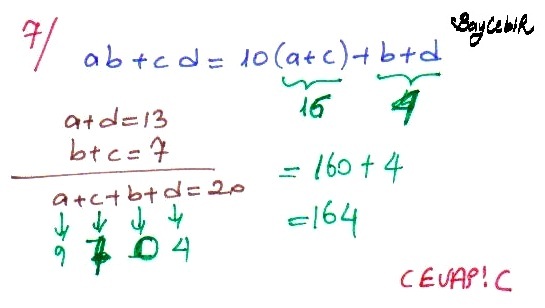 BayCebiR
7/ ab+cd = 10(a+c)+b+d
16 4
a+d=13
b+c=7
a+c+b+d=20
↓ ↓ ↓ ↓
9 7 0 4
= 160 + 4
= 164
CEVAP: C